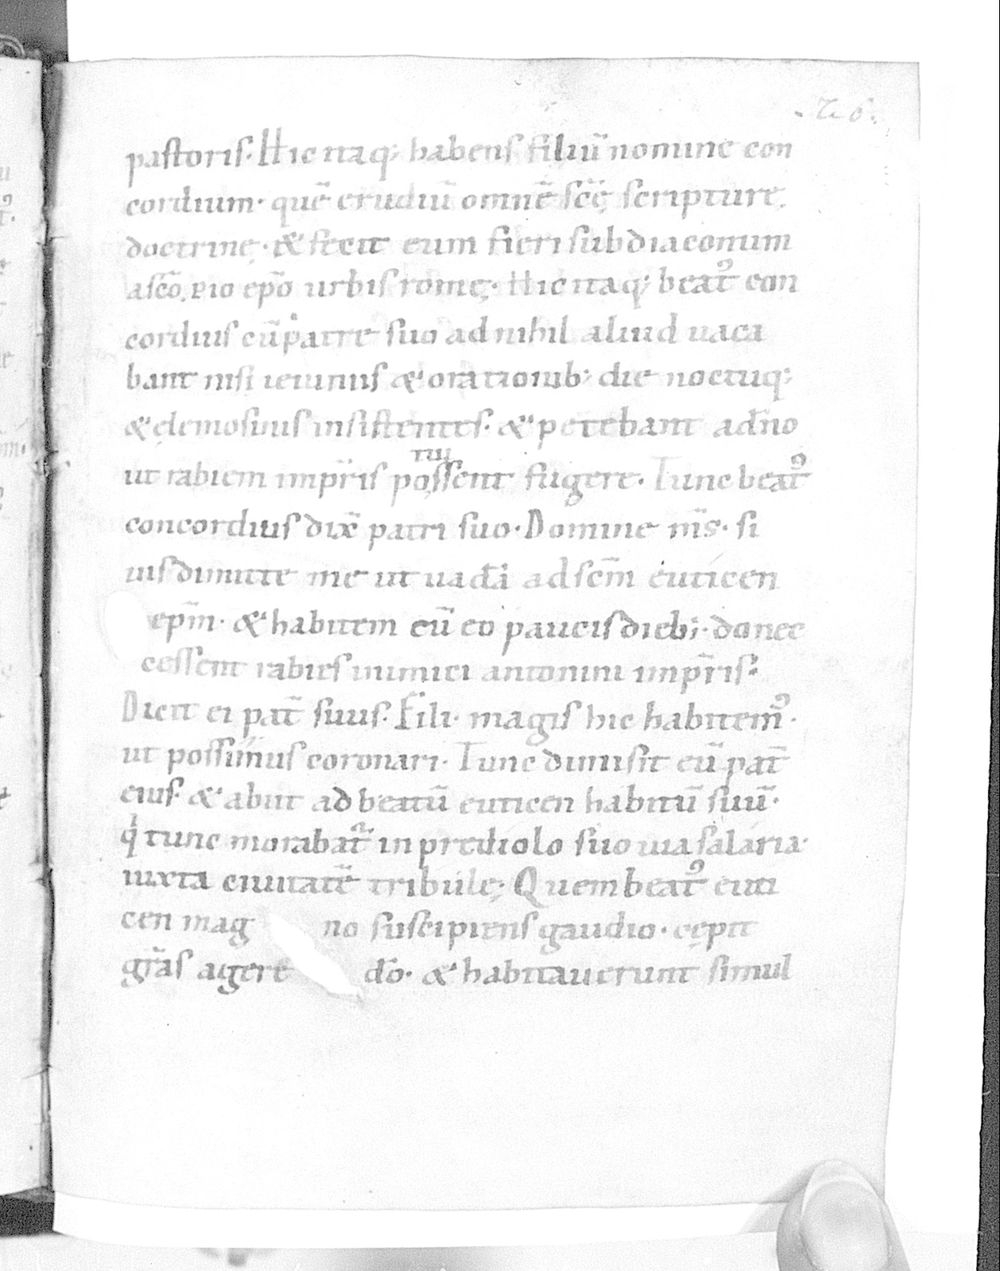 26.
pastoris. Hic itaq; habens filiū nomine con
cordium. quē erudiū omnē scę̄ scripture.
doctrinę. & fecit eum fieri subdiaconum
a scō pio ep̄o urbis romę. Hic itaq; beatꝰ con
cordius cū patre suo ad nihil aliud uaca
bant nisi ieiuniis & orationib; die noctuq;
& elemosinis insistentes. & petebant ad dn̄o
ut rabiem imp̄ris possent fugere. Tunc beatꝰ
tui
concordius dix̄ patri suo. Domine m̄s. si
uis dimitte me ut uadā ad scm̄ euticen
ep̄m. & habitem cū eo paucis dieb; donec
cessent rabies inimici antonini imp̄ris.
Dicit ei pat̄ suus. Fili. magis hic habitemꝰ.
ut possimus coronari. Tunc dimisit eū pat̄
eius. & abiit ad beatū euticen habitū suū.
q tunc morabat in prediolo suo uia salaria.
iuxta ciuitatē tribulę; Quem beatꝰ euti
cen mag no suscipiens gaudio. cępit
gr̄as agere dō. & habitauerunt simul